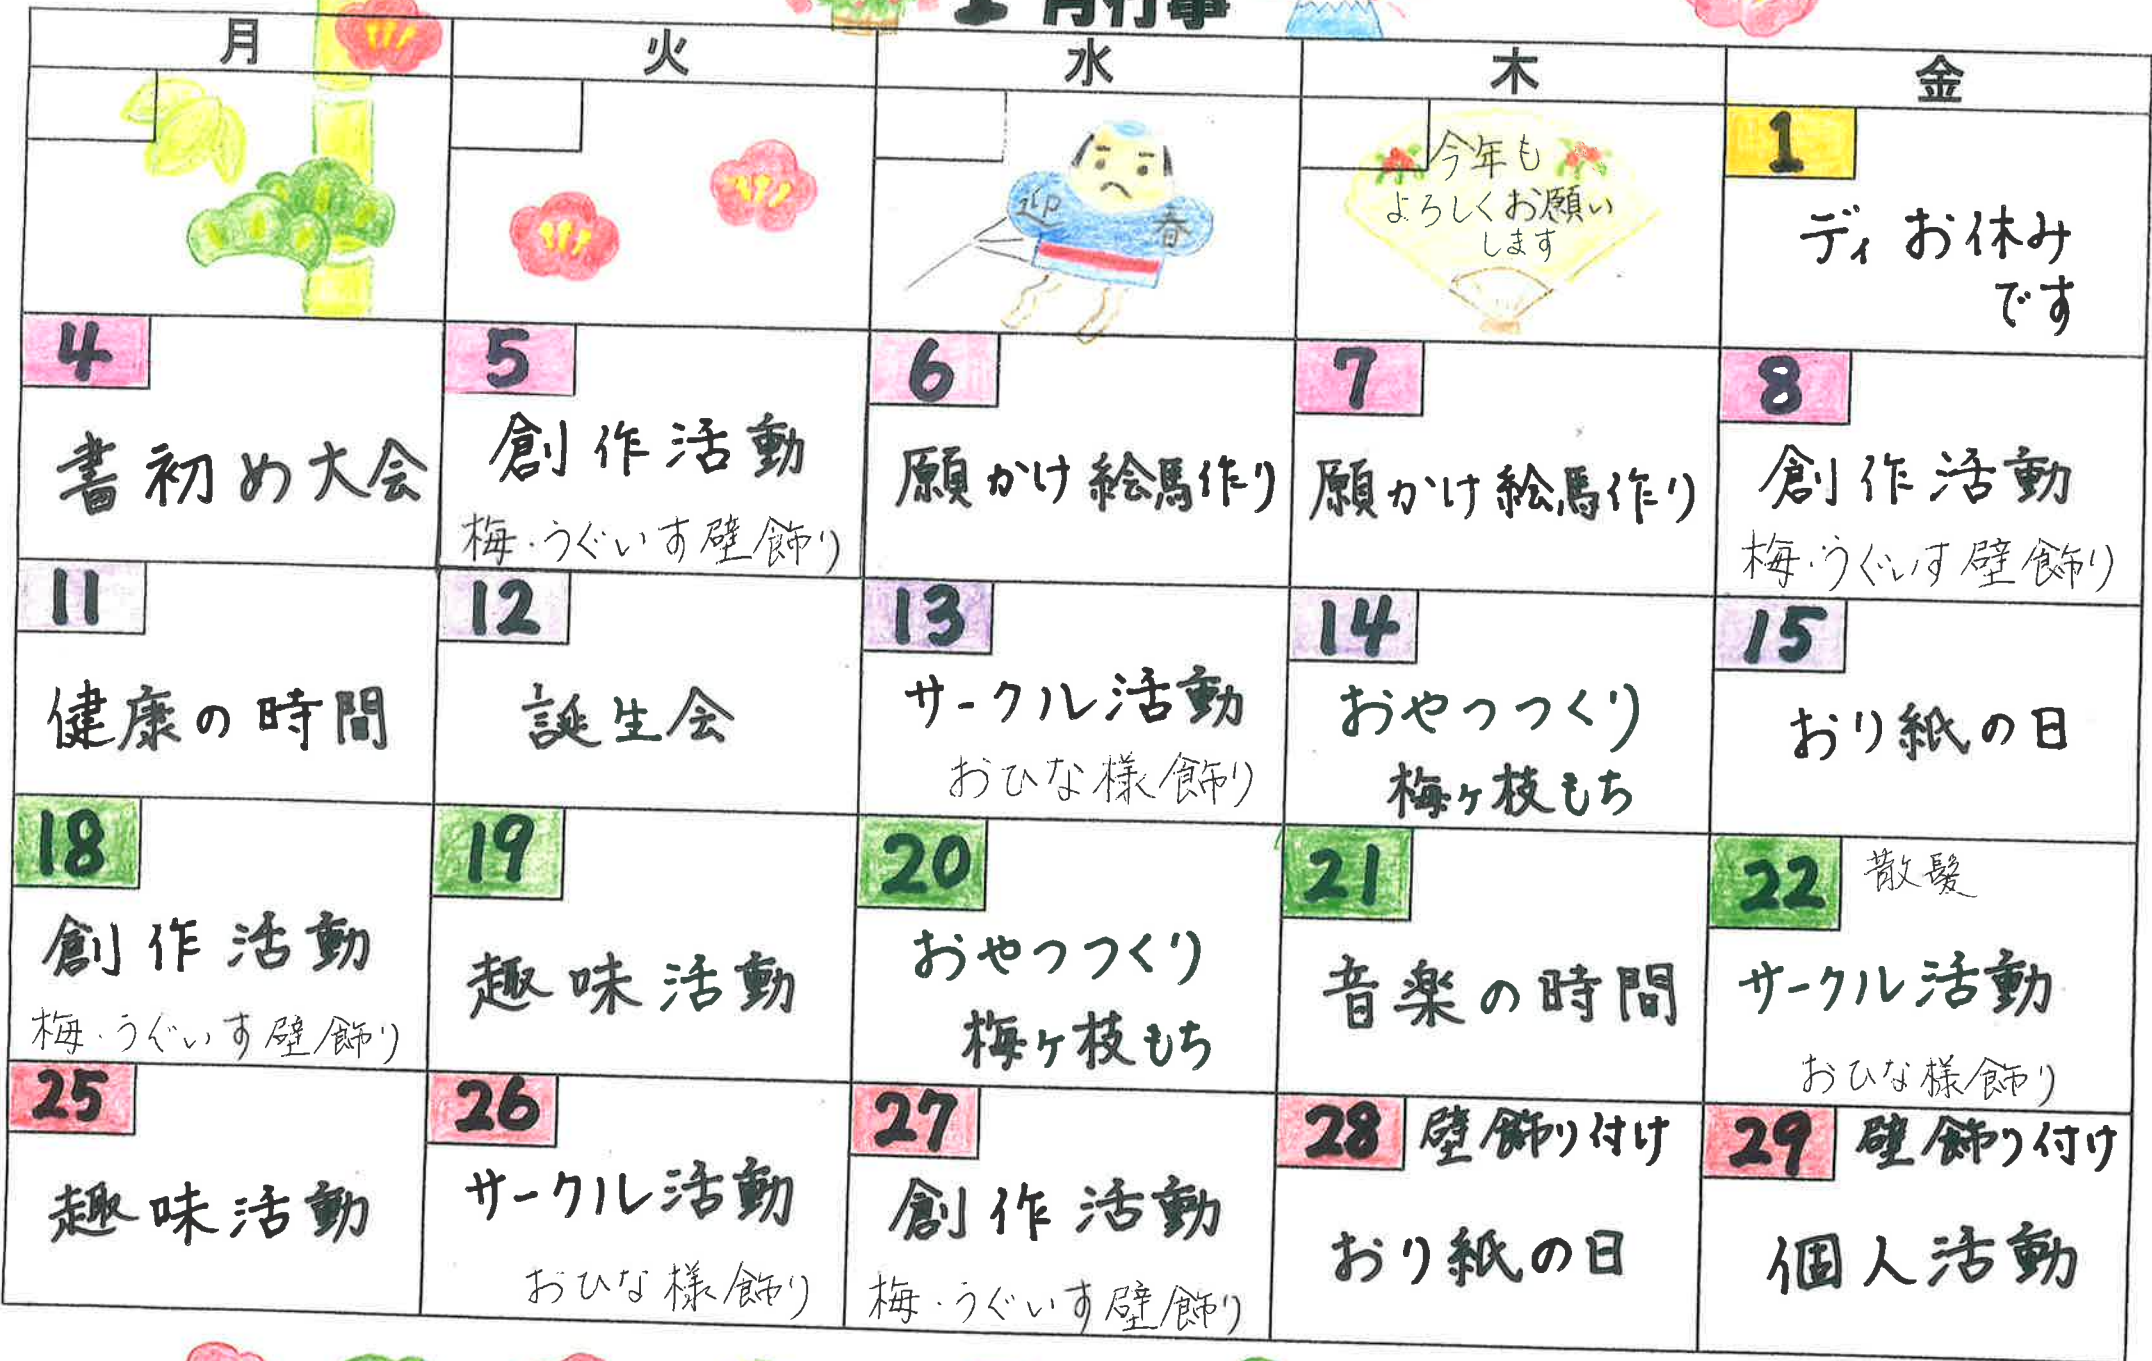 1月行事
月 火 水 木 金
迎春
今年も
よろしくお願い
します
1
ディ お休み
です
4
書初め大会
5
創作活動
梅・うぐいす壁飾り
6
願かけ絵馬作り
7
願かけ絵馬作り
8
創作活動
梅・うぐいす壁飾り
11
健康の時間
12
誕生会
13
サークル活動
おひな様飾り
14
おやつつくり
梅ヶ枝もち
15
おり紙の日
18
創作活動
梅・うぐいす壁飾り
19
趣味活動
20
おやつつくり
梅ヶ枝もち
21
音楽の時間
22 散髪
サークル活動
おひな様飾り
25
趣味活動
26
サークル活動
おひな様飾り
27
創作活動
梅・うぐいす壁飾り
28 壁飾り付け
おり紙の日
29 壁飾り付け
個人活動